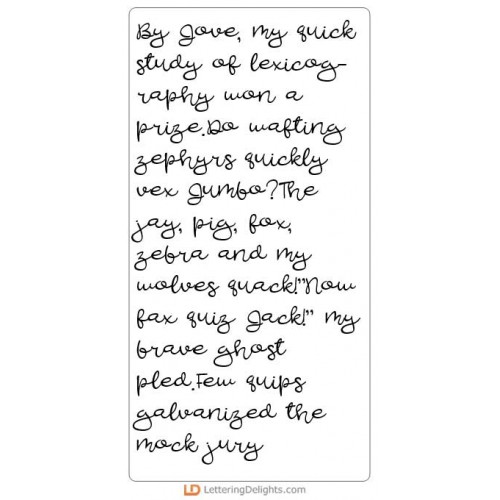 By Jove, my quick
study of lexicog-
raphy won a
prize.Do wafting
zephyrs quickly
vex Jumbo?The
jay, pig, fox,
zebra and my
wolves quack!"Now
fax quiz Jack!" my
brave ghost
pled.Few quips
galvanized the
mock jury
LD LetteringDelights.com